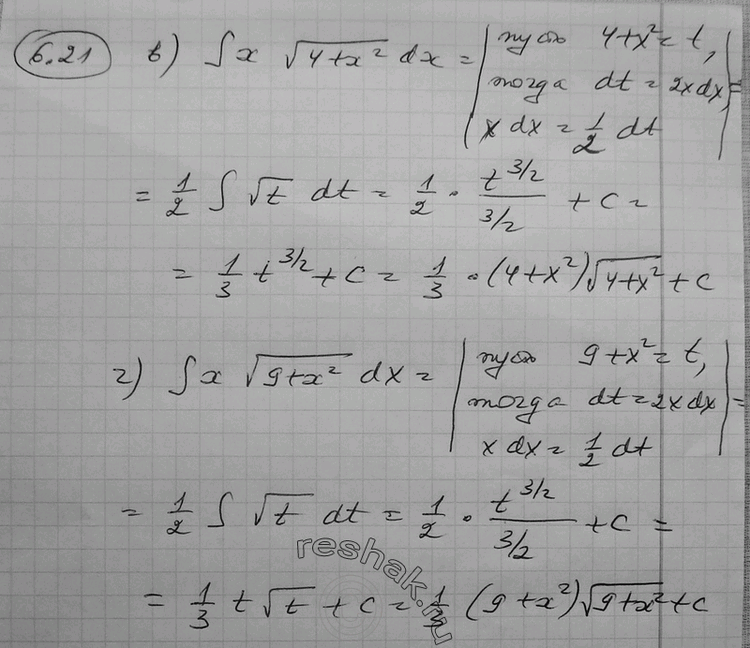 6.21 в) ∫ x √(4+x²) dx = | пусть 4+x² = t,
тогда dt = 2x dx, | =
x dx = 1/2 dt
= 1/2 ∫ √t dt = 1/2 · t^(3/2) / (3/2) + C =
= 1/3 t^(3/2) + C = 1/3 · (4+x²)√(4+x²) + C
г) ∫ x √(9+x²) dx = | пусть 9+x² = t,
тогда dt = 2x dx | =
x dx = 1/2 dt
= 1/2 ∫ √t dt = 1/2 · t^(3/2) / (3/2) + C =
= 1/3 t √t + C = 1/3 (9+x²)√(9+x²) + C
reshak.ru